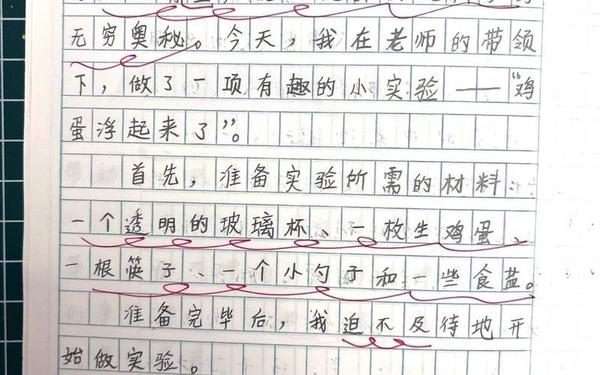 无穷奥秘。今天，我在老师的带领
下，做了一项有趣的小实验——“鸡
蛋浮起来了”。
首先，准备实验所需的材料：
一个透明的玻璃杯、一枚生鸡蛋、
一根筷子、一个小勺子和一些食盐。
准备完毕后，我迫不及待地开
始做实验。